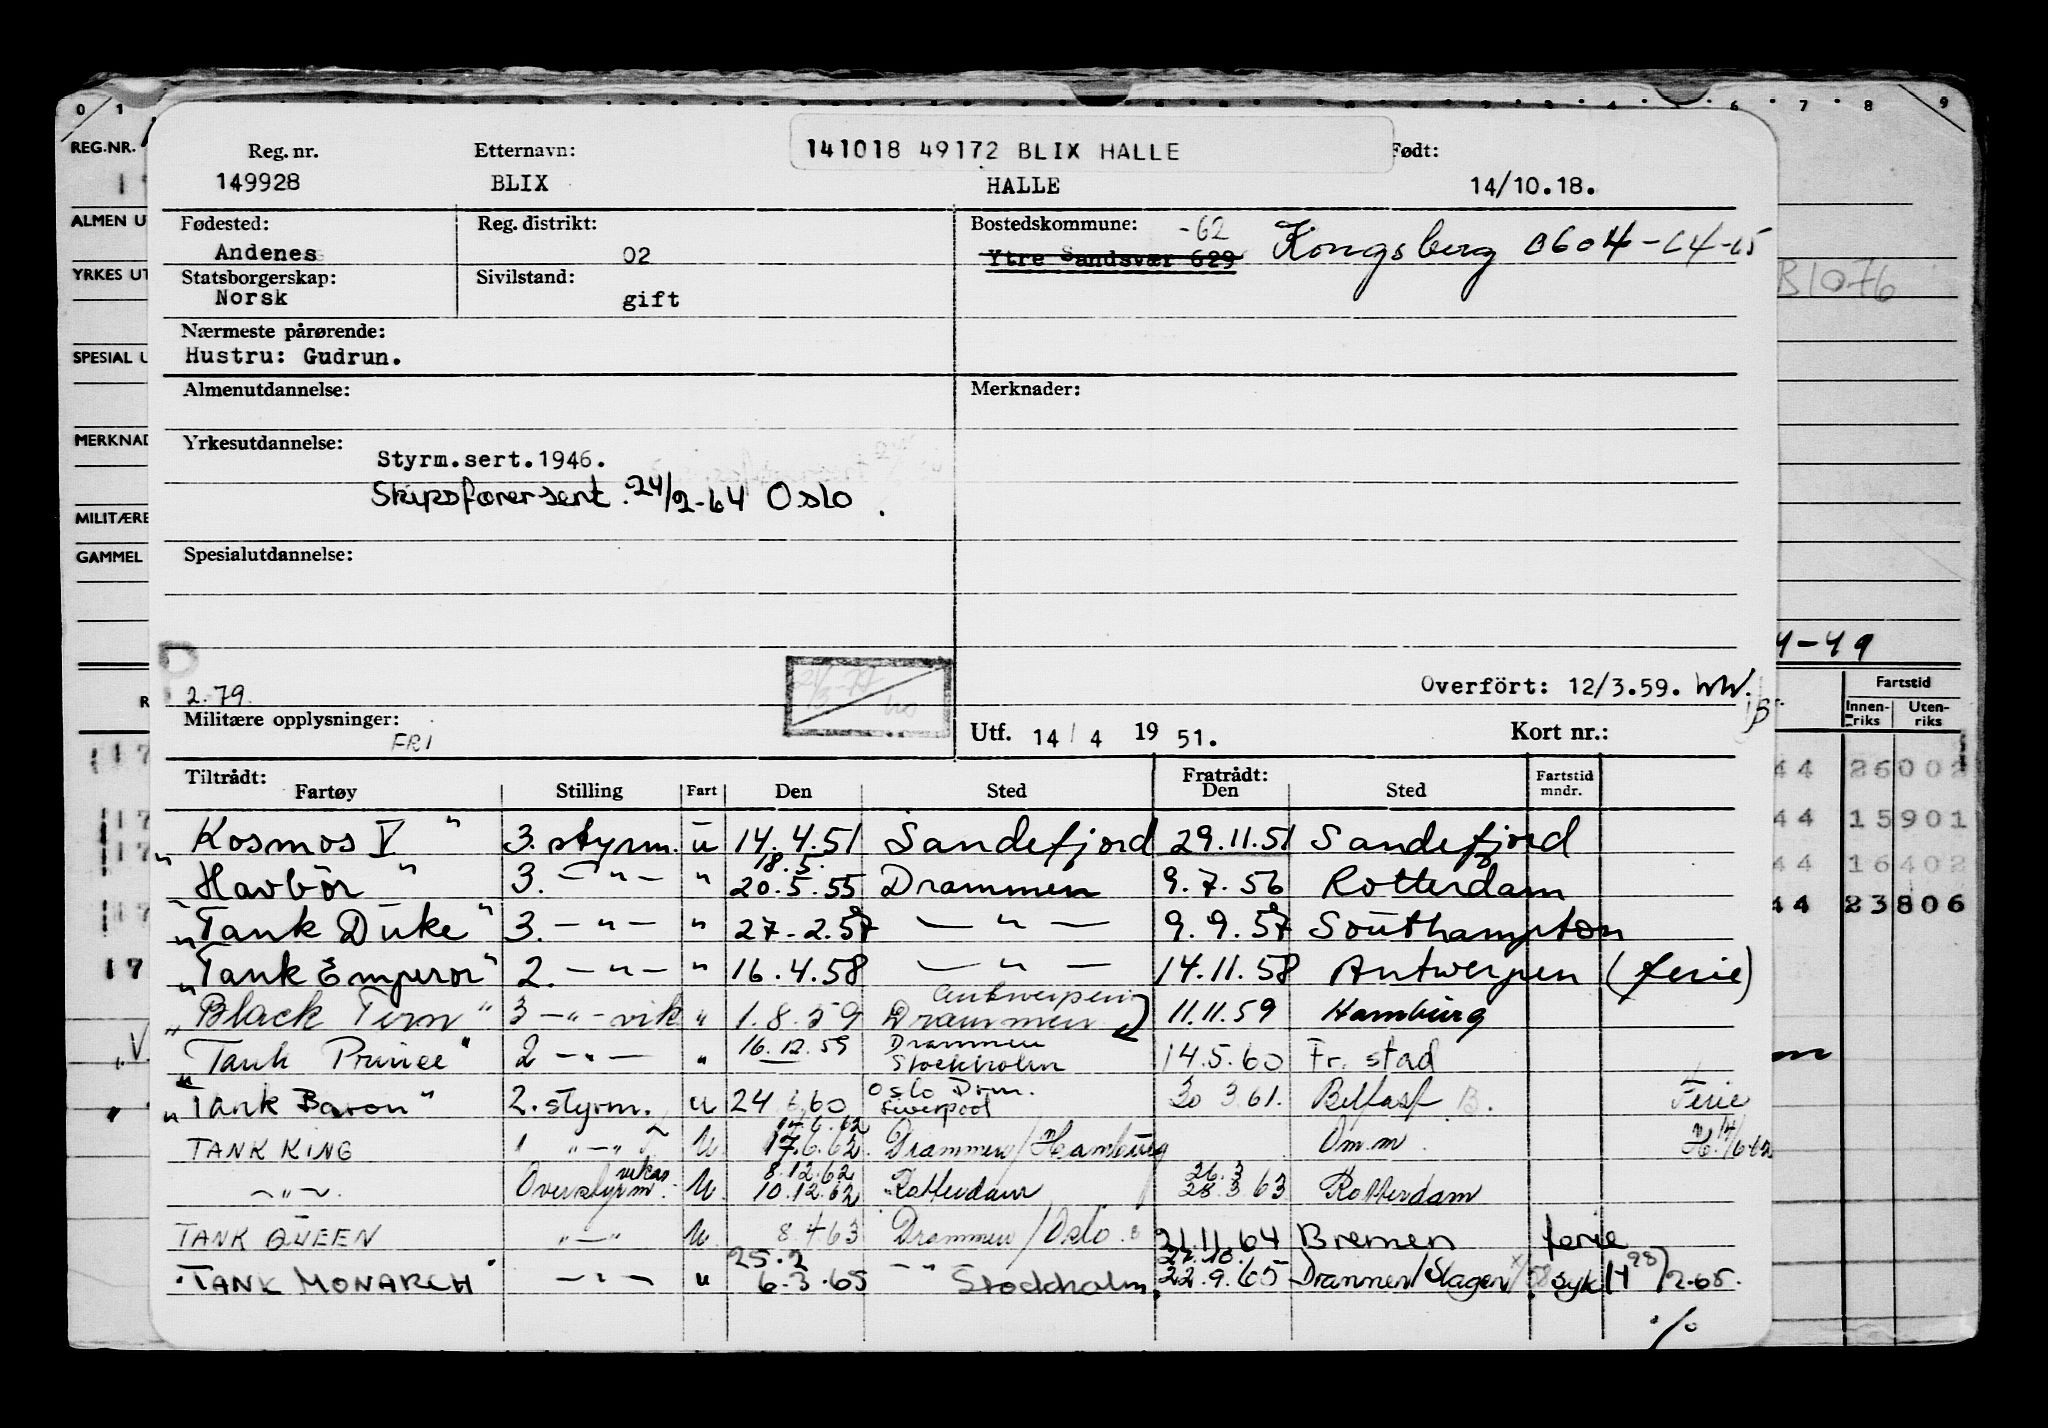 0 1 4 6 7 8 9
REG.NR. Reg. nr. Etternavn: 141018 49172 BLIX HALLE Født:
149928 BLIX HALLE 14/10.18.
ALMEN U Fødested: Reg. distrikt: Bostedskommune: -62 Kongsberg 0604-14-15
Andenes 02 Ytre Sandsvær 629
YRKES UT Statsborgerskap: Sivilstand: B1076
Norsk gift
Nærmeste pårørende:
SPESIAL U Hustru: Gudrun.
Almenutdannelse: Merknader:
MERKNAD Yrkesutdannelse:
Styrm.sert.1946.
Skipsförersert. 24/2-64 Oslo
MILITÆRE
GAMMEL Spesialutdannelse:
4-49
2.79. Overfört: 12/3.59. WW.
Militære opplysninger: Utf. 14/4 19 51. Kort nr.:
FRI
Fartstid
Innenriks Utenriks
Tiltrådt: Fratrådt: Fartstid mndr.
Fartøy Stilling Fart Den Sted Den Sted
"Kosmos V" 3. styrm. u 14.4.51 Sandefjord 29.11.51 Sandefjord
18.5.
"Havbör" 3. -"- " 20.5.55 Drammen 9.7.56 Rotterdam
"Tank Duke" 3. -"- " 27.2.57 -"- 9.9.57 Southampton
"Tank Emperor" 2. -"- " 16.4.58 -"- 14.11.58 Antwerpen (ferie)
Antwerpen
"Black Tern" 3 -"- vik " 1.8.59 Drammen 11.11.59 Hamburg
Drammen
"Tank Prince" 2 -"- " 16.12.59 Stockholm 14.5.60 Fr. stad
Oslo Drm.
"Tank Baron" 2. styrm. u 24 6 60 Liverpool 30 3 61. Belfast B. Ferie
TANK KING 1 "-" u 17.6.62 Drammen/Hamburg Om.m H. 14/6-62
vikar 8.12.62 26.3
-"- Overstyrm. u 10.12.62 Rotterdam 28.3 63 Rotterdam
TANK QUEEN "-" u 8 4 63 Drammen/Oslo 21.11.64 Bremen ferie
25.2 22.10.
"TANK MONARCH" -"- u 6.3.65 -"- Stockholm. 22.9.65 Drammen/Slagen syk H 25/2-65.
./.
44 26002
44 15901
44 16402
44 23806